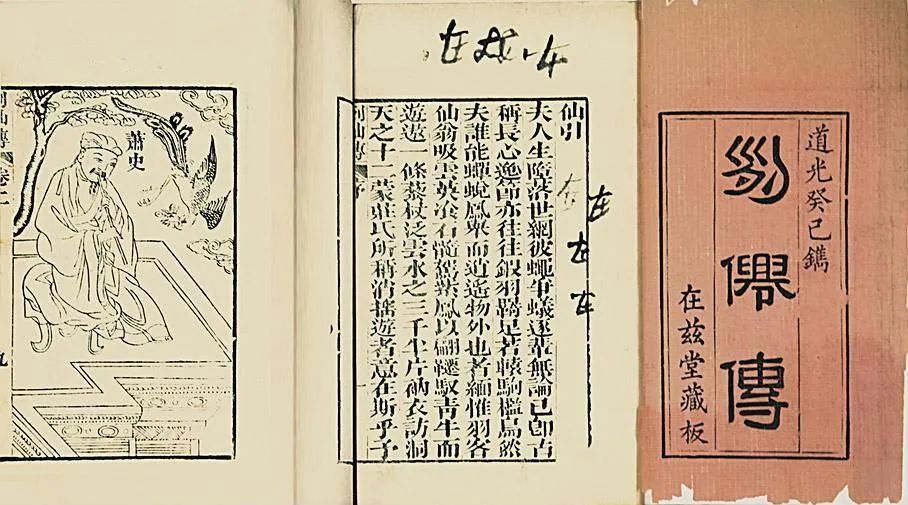 道光癸巳鐫
列僊傳
在茲堂藏板
仙引
夫人生墮落世網彼蠅爭蟻逐輩無論已即古
稱長心逸節亦往往鎩羽羇足若轅駒檻鳥然
夫誰能蟬蛻鳳舉而逍遙物外也者緬惟羽客
仙翁吸雲英冶石髓駕紫鳳以翩躚馭青牛而
遊遨一條藜杖泛雲水之三千半片衲衣訪洞
天之十二蒙莊氏所稱消搖遊者意在斯乎予
列仙傳 序 一
在
在
在
在
蕭史
列仙傳 卷二 九